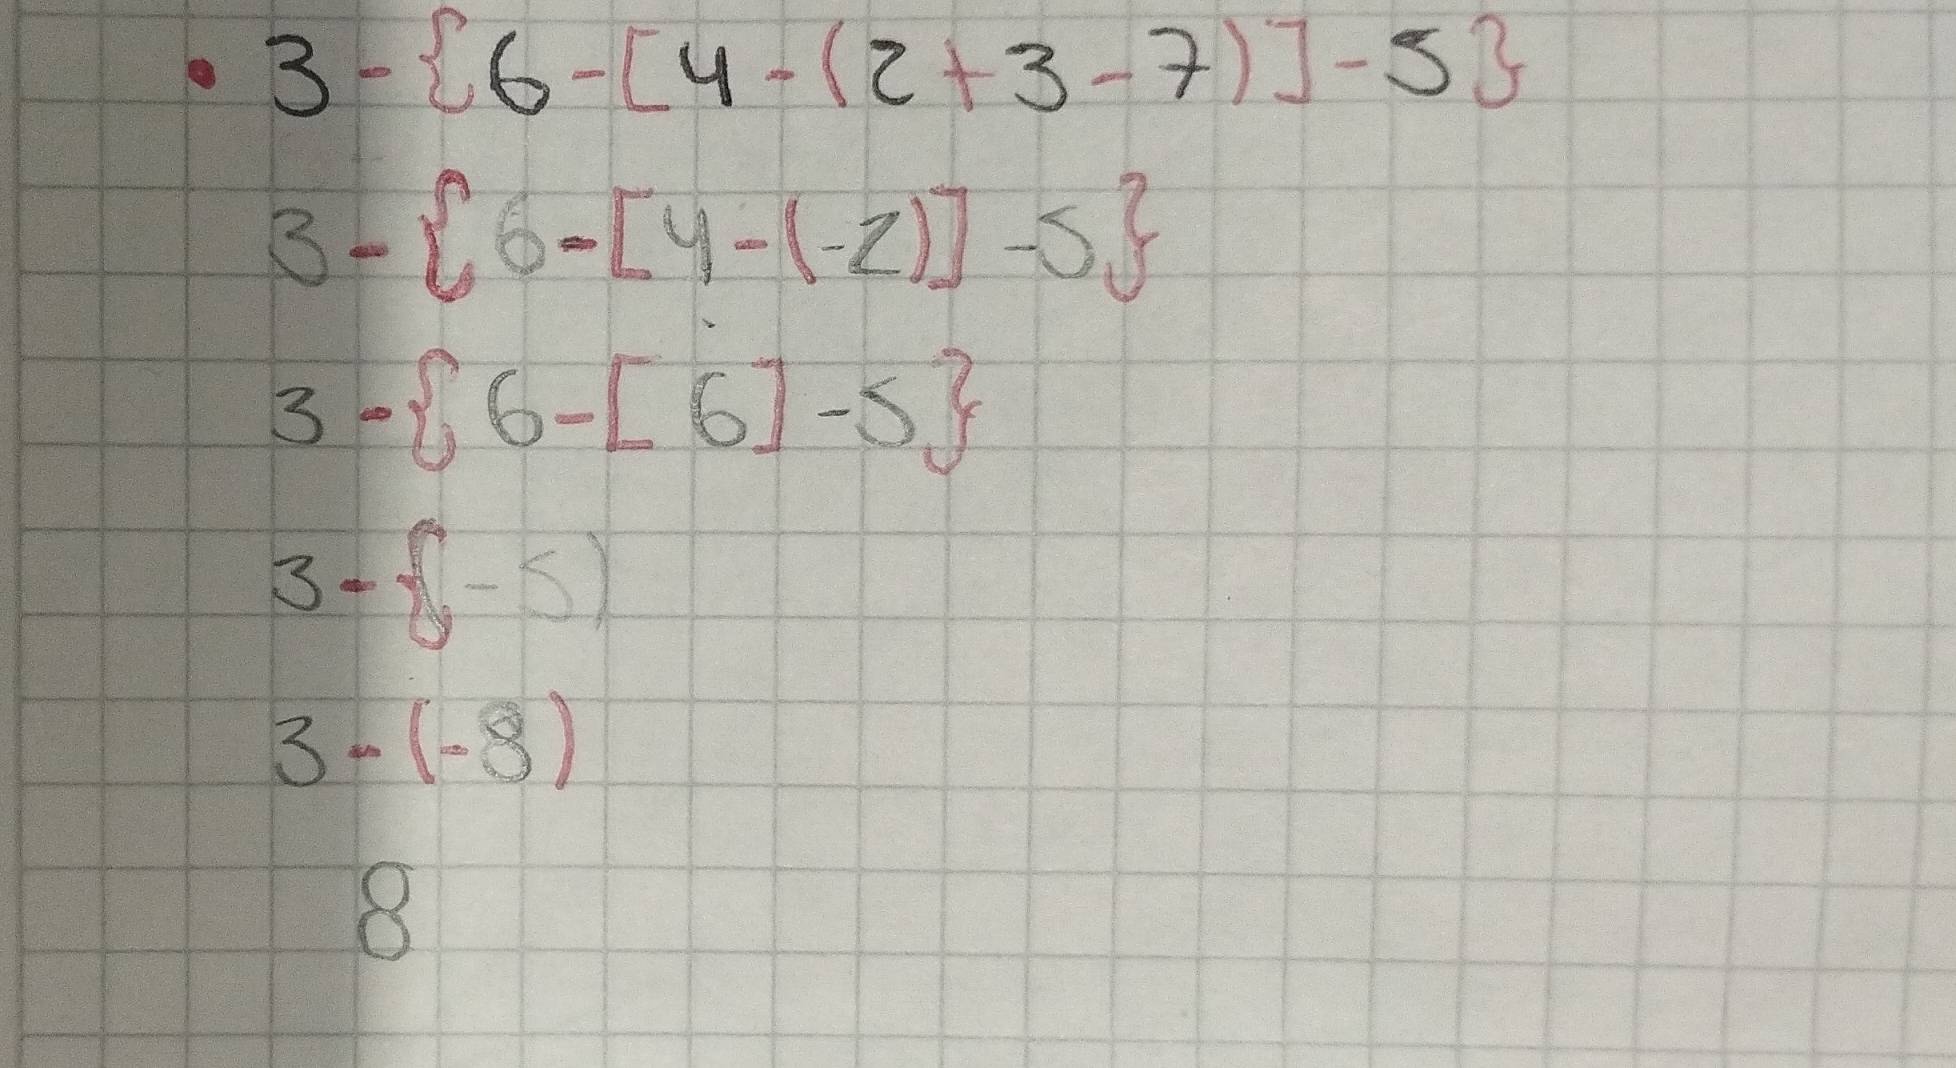 • 3 - {6 - [4 - (2 + 3 - 7)] - 5}
3 - {6 - [4 - (-2)] - 5}
3 - {6 - [6] - 5}
3 - {-5)
3 - (-8)
8